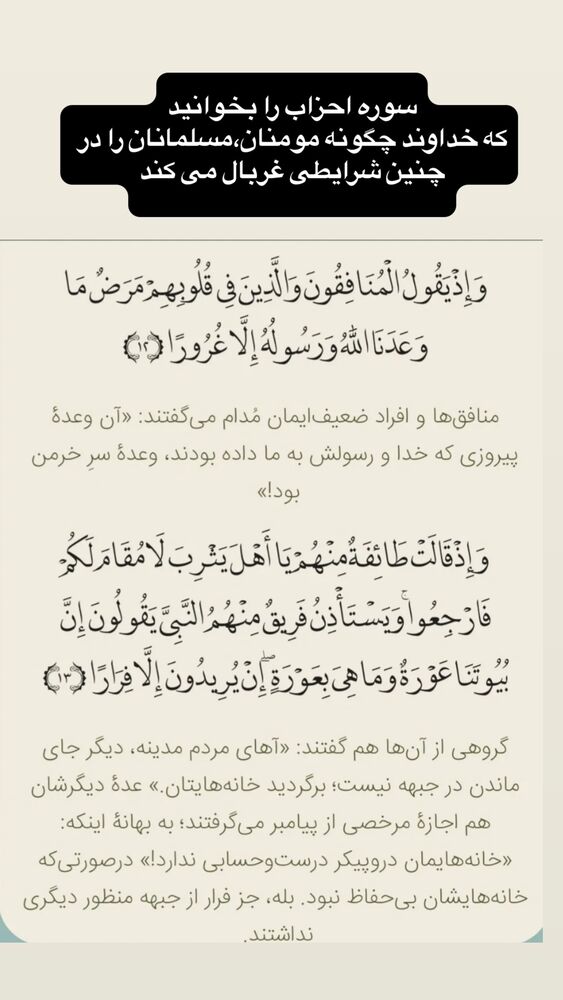 سوره احزاب را بخوانید
که خداوند چگونه مومنان،مسلمانان را در
چنین شرایطی غربال می کند
وَإِذْ يَقُولُ الْمُنَافِقُونَ وَالَّذِينَ فِي قُلُوبِهِمْ مَرَضٌ مَا
وَعَدَنَا اللَّهُ وَرَسُولُهُ إِلَّا غُرُورًا ﴿۱۲﴾
منافق‌ها و افراد ضعیف‌ایمان مُدام می‌گفتند: «آن وعدهٔ
پیروزی که خدا و رسولش به ما داده بودند، وعدهٔ سرِ خرمن
بود!»
وَإِذْ قَالَتْ طَائِفَةٌ مِنْهُمْ يَا أَهْلَ يَثْرِبَ لَا مُقَامَ لَكُمْ
فَارْجِعُوا ۚ وَيَسْتَأْذِنُ فَرِيقٌ مِنْهُمُ النَّبِيَّ يَقُولُونَ إِنَّ
بُيُوتَنَا عَوْرَةٌ وَمَا هِيَ بِعَوْرَةٍ ۖ إِنْ يُرِيدُونَ إِلَّا فِرَارًا ﴿۱۳﴾
گروهی از آن‌ها هم گفتند: «آهای مردم مدینه، دیگر جای
ماندن در جبهه نیست؛ برگردید خانه‌هایتان.» عدهٔ دیگرشان
هم اجازهٔ مرخصی از پیامبر می‌گرفتند؛ به بهانهٔ اینکه:
«خانه‌هایمان دروپیکر درست‌وحسابی ندارد!» درصورتی‌که
خانه‌هایشان بی‌حفاظ نبود. بله، جز فرار از جبهه منظور دیگری
نداشتند.